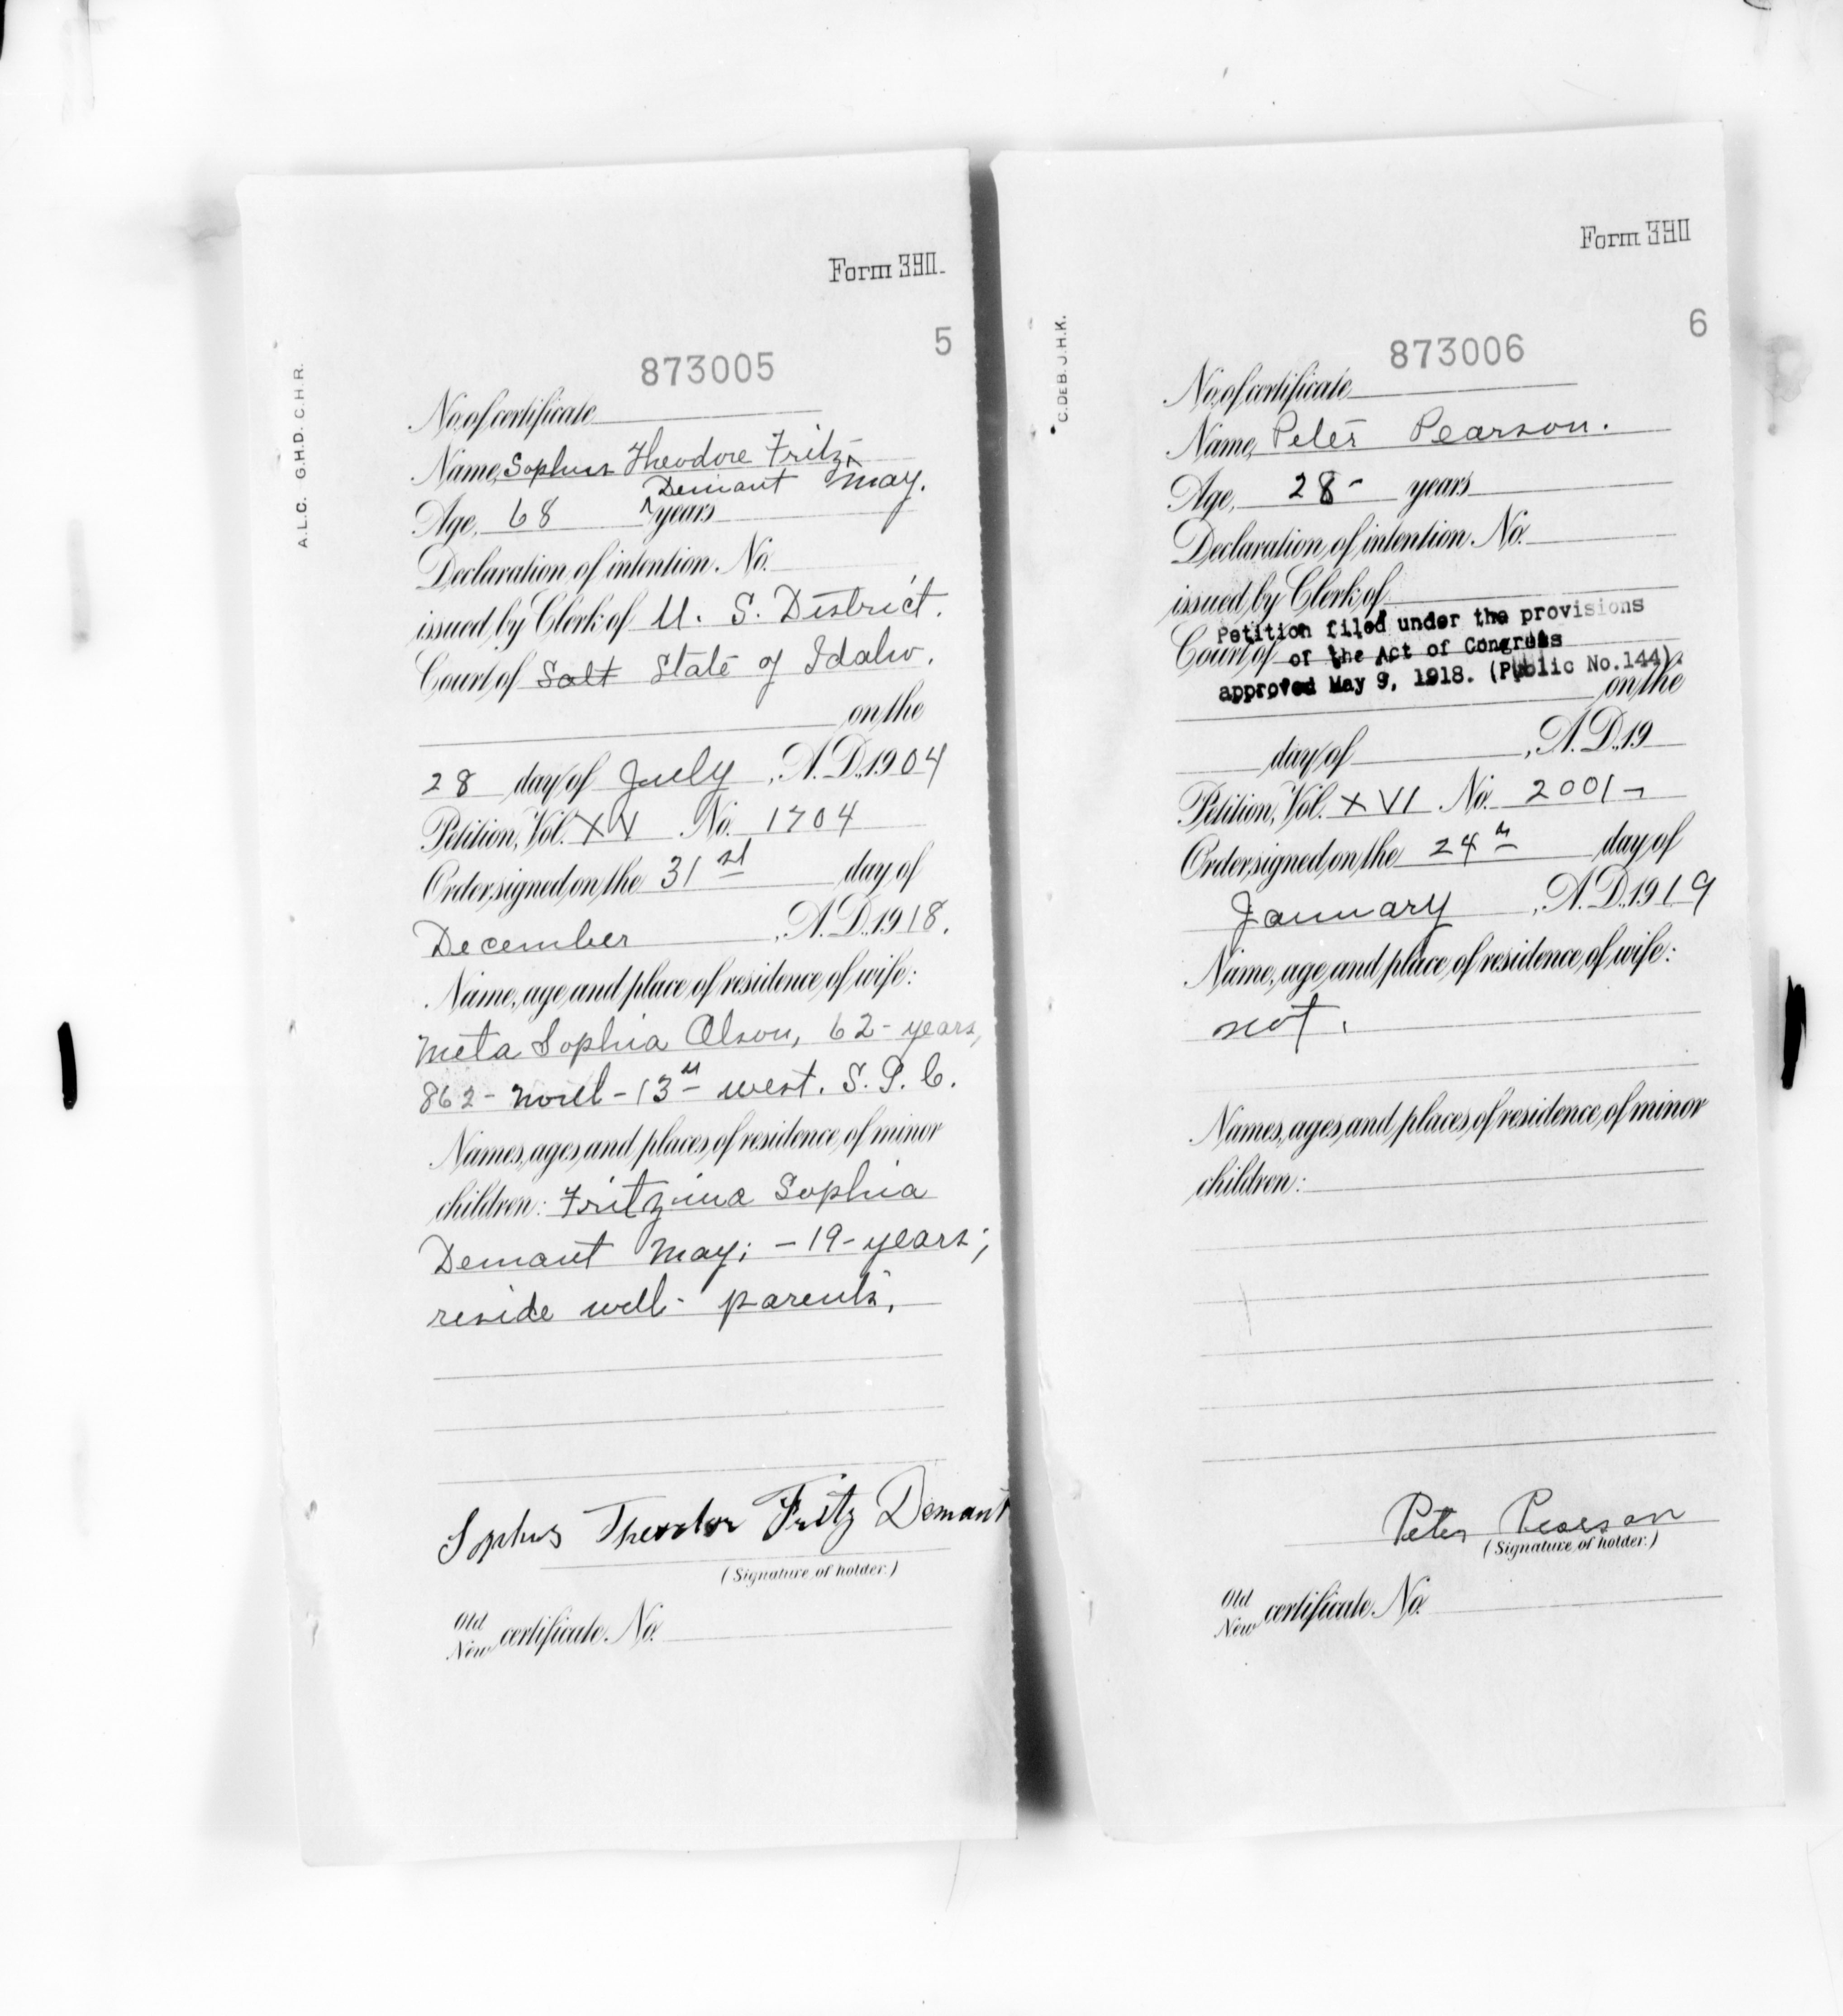 Form 390.
5
873005
A.L.C. G.H.D. C.H.R.
No. of certificate
Name, Sophus Theodore Fritz
Demant May.
Age, 68 years
Declaration of intention. No.
issued by Clerk of U. S. District.
Court of Salt State of Idaho.
on the
28 day of July, A.D. 1904
Petition, Vol. XV No. 1704
Order signed on the 31st day of
December, A.D. 1918.
Name, age and place of residence of wife:
Meta Sophia Olson, 62 - years,
862 - North - 13th west. S. L. C.
Names, ages and places of residence of minor
children: Fritzina Sophia
Demant May; - 19 - years;
reside with parents.
Sophus Theodor Fritz Demant
(Signature of holder.)
Old
New certificate. No.
Form 390
6
873006
C.DEB. J.H.K.
No. of certificate
Name, Peter Pearson.
Age, 28 - years
Declaration of intention. No.
issued by Clerk of
Petition filed under the provisions
Court of of the Act of Congress
approved May 9, 1918. (Public No.144).
on the
day of , A.D. 19
Petition, Vol. XVI No. 2001 -
Order signed on the 24th day of
January, A.D. 1919
Name, age and place of residence of wife:
not.
Names, ages and places of residence of minor
children:
Peter Pearson
(Signature of holder.)
Old
New certificate. No.